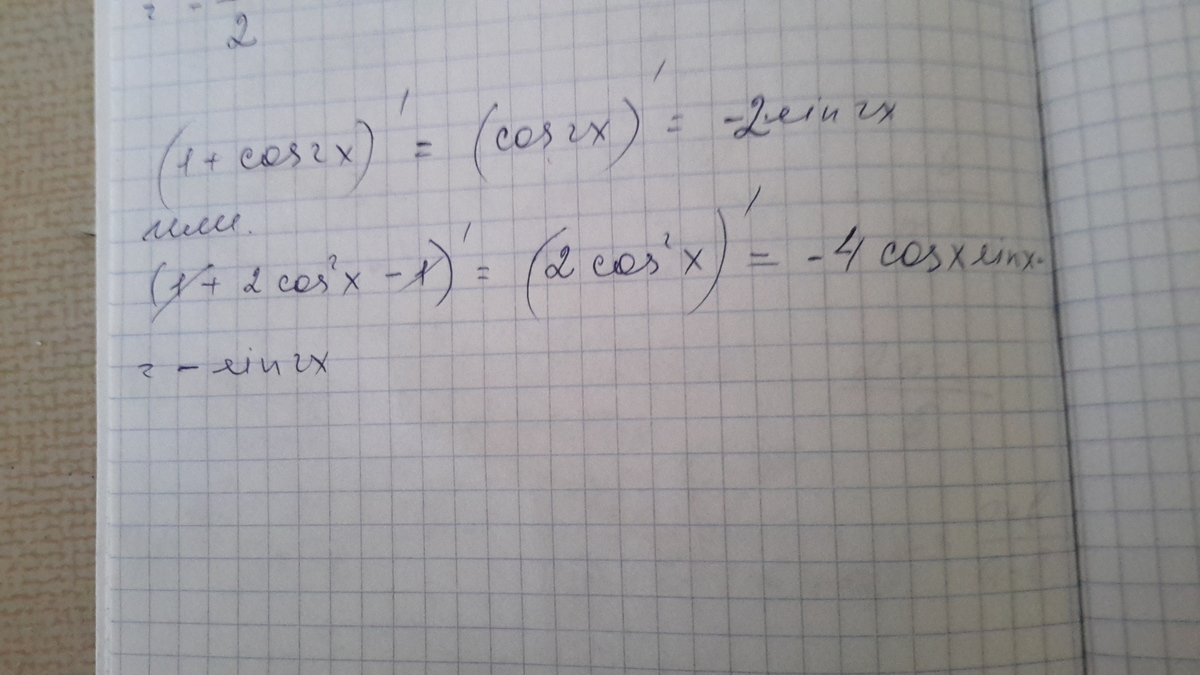 = - 2
(1 + cos 2x)' = (cos 2x)' = -2 sin 2x
или.
(1 + 2 cos²x - 1)' = (2 cos²x)' = -4 cosx sinx.
= - sin 2x